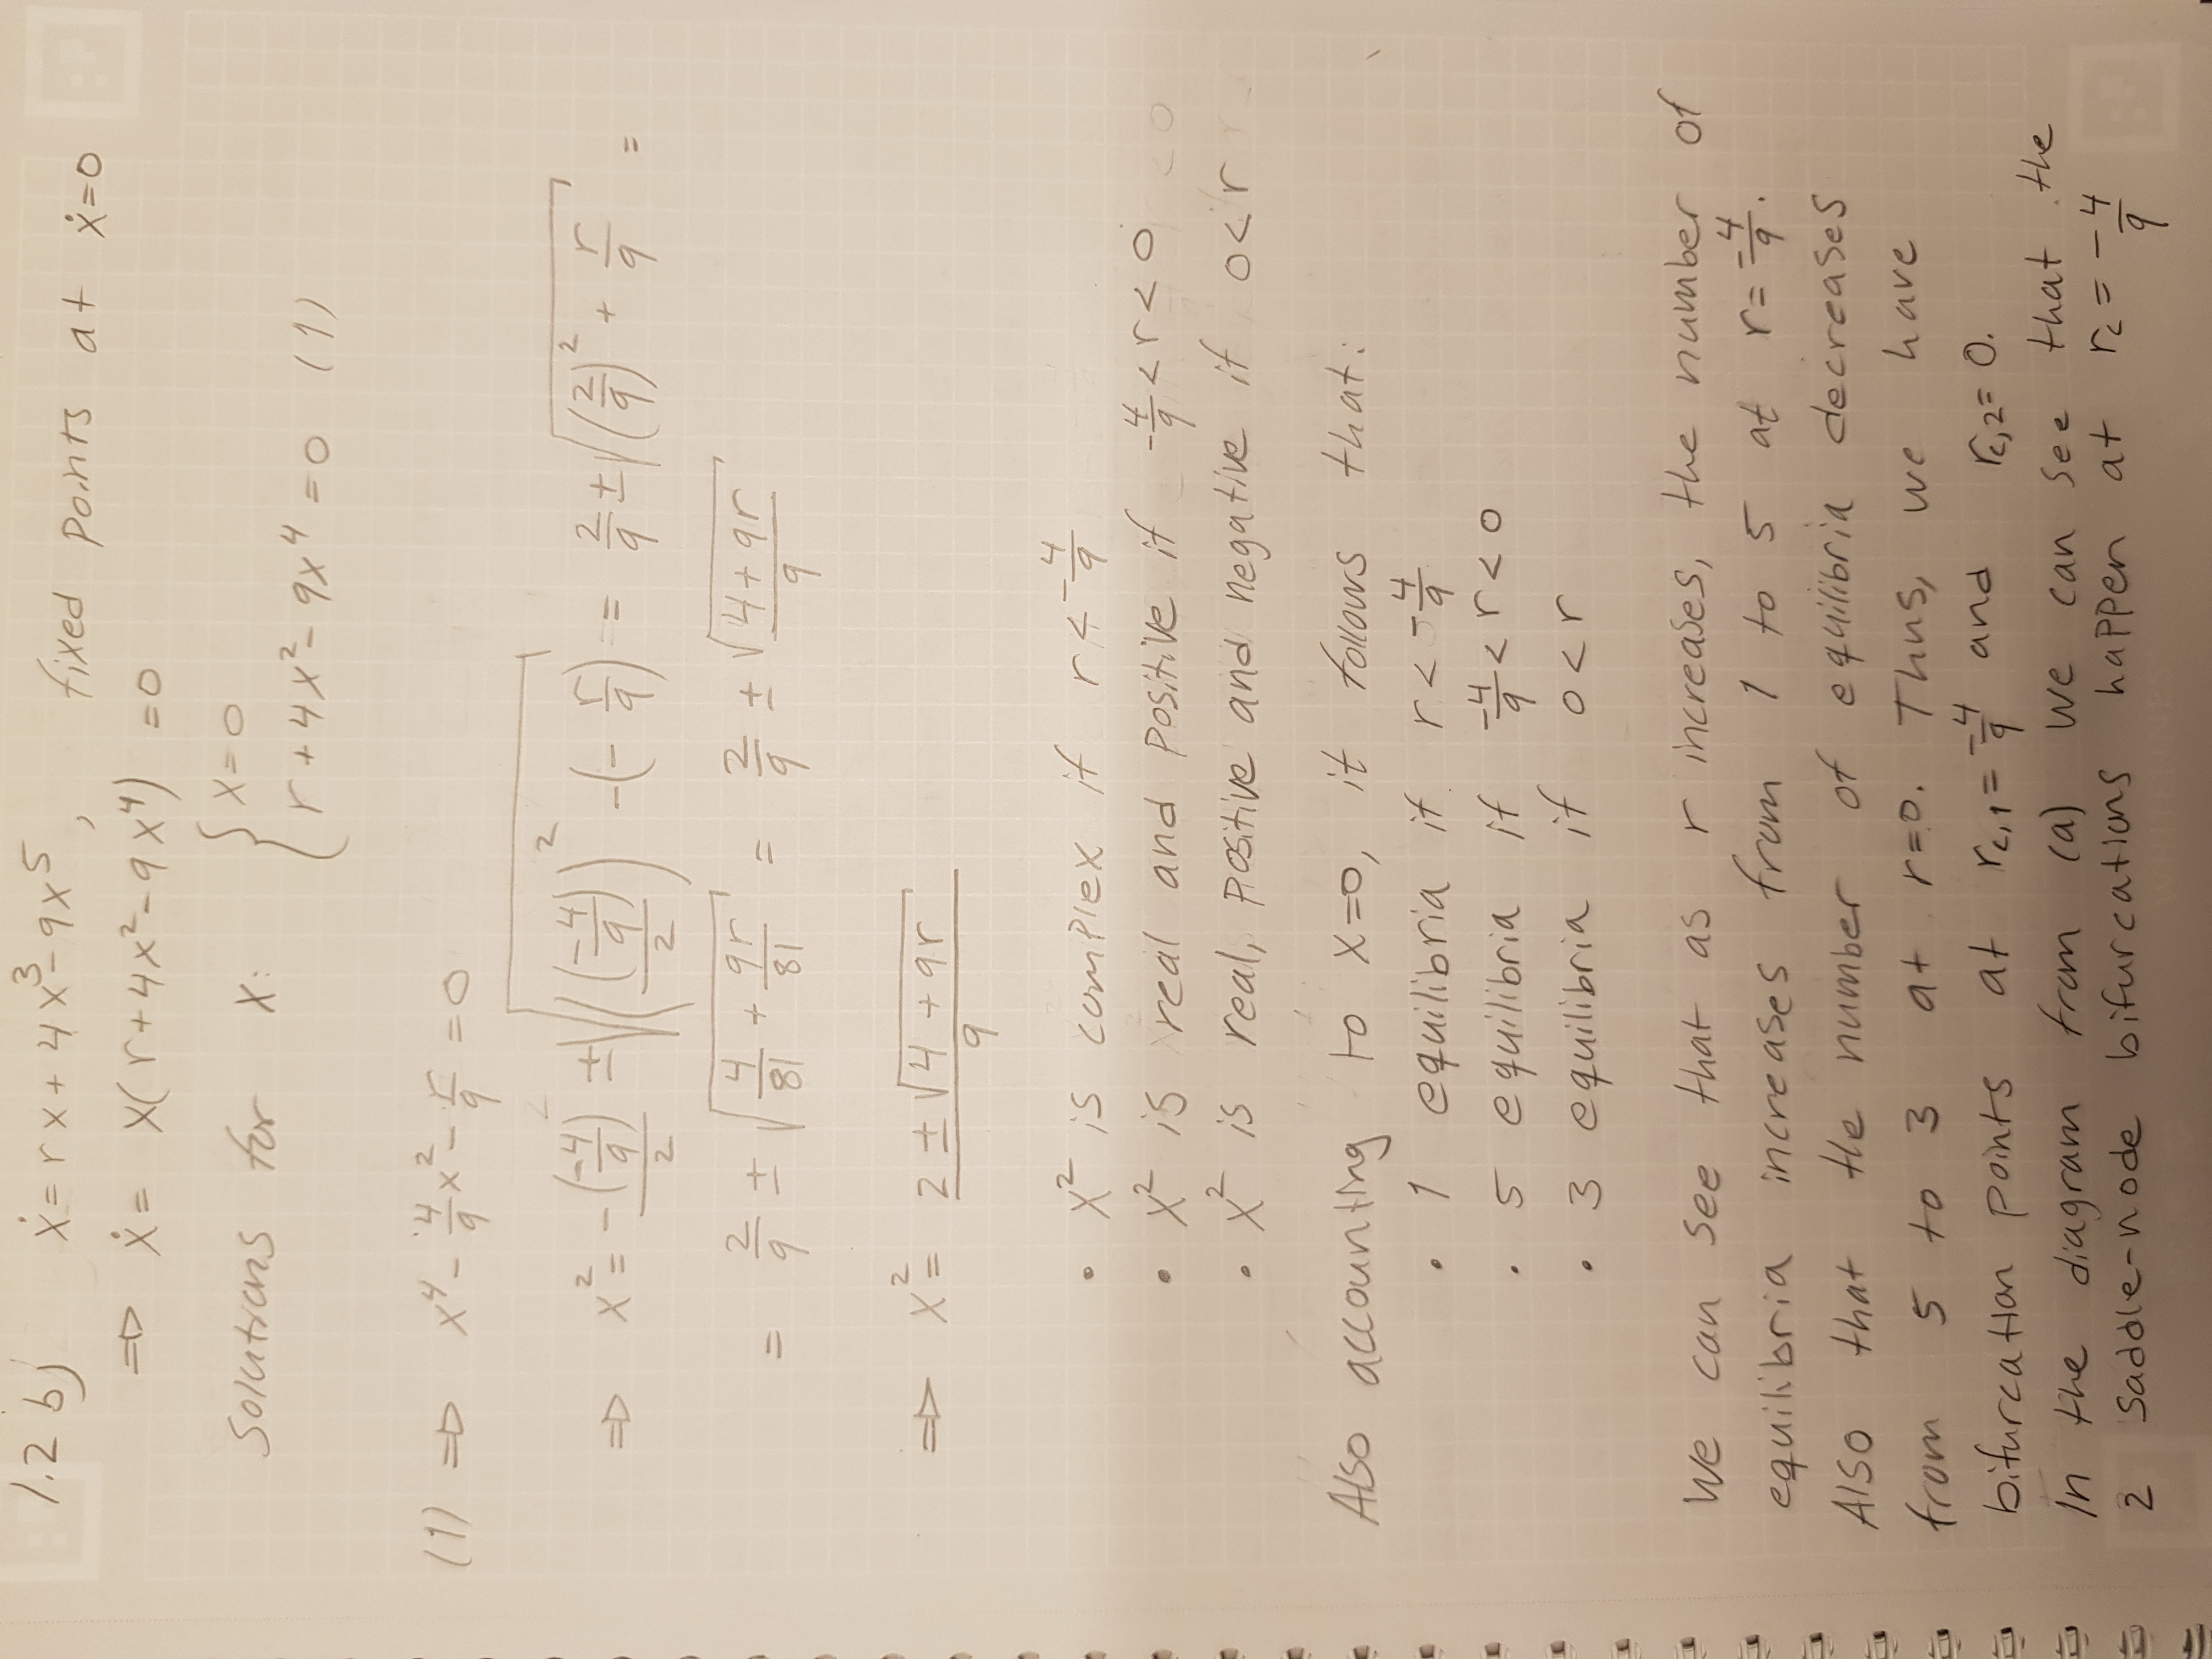 1.2 b) ẋ = rx + 4x³ - 9x⁵, fixed points at ẋ=0
⇒ ẋ = x(r + 4x² - 9x⁴) = 0
Solutions for x: { x=0
r + 4x² - 9x⁴ = 0 (1)
(1) ⇒ x⁴ - 4/9 x² - r/9 = 0
⇒ x² = -(-4/9)/2 ± √(((-4/9)/2)² - (-r/9)) = 2/9 ± √((2/9)² + r/9) =
= 2/9 ± √(4/81 + 9r/81) = 2/9 ± √(4+9r)/9
⇒ x² = (2 ± √(4 + 9r))/9
• x² is complex if r < -4/9
• x² is real and positive if -4/9 < r < 0
• x² is real, positive and negative if 0 < r
Also accounting to x=0, it follows that:
• 1 equilibria if r < -4/9
• 5 equilibria if -4/9 < r < 0
• 3 equilibria if 0 < r
We can see that as r increases, the number of
equilibria increases from 1 to 5 at r = -4/9.
Also that the number of equilibria decreases
from 5 to 3 at r=0. Thus, we have
bifurcation points at r_c,1 = -4/9 and r_c,2 = 0.
In the diagram from (a) we can see that the
2 saddle-node bifurcations happen at r_c = -4/9